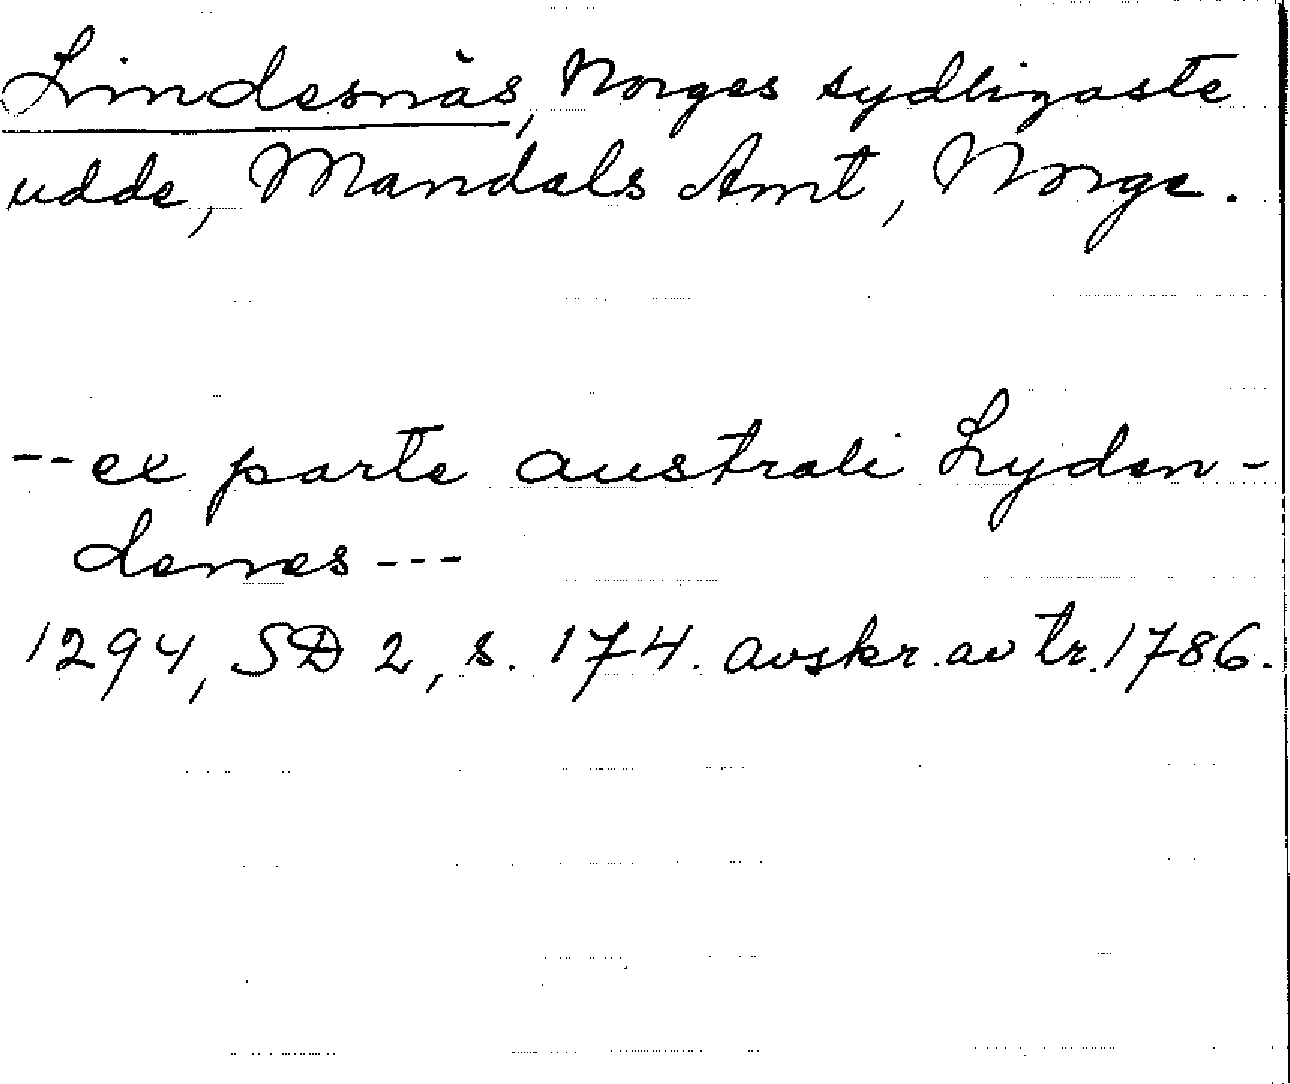 Lindesnäs, Norges sydligaste
udde, Mandals Amt, Norge.
--ex parte australi Lyden-
denes---
1294, SD 2, s. 174. avskr. av tr. 1786.